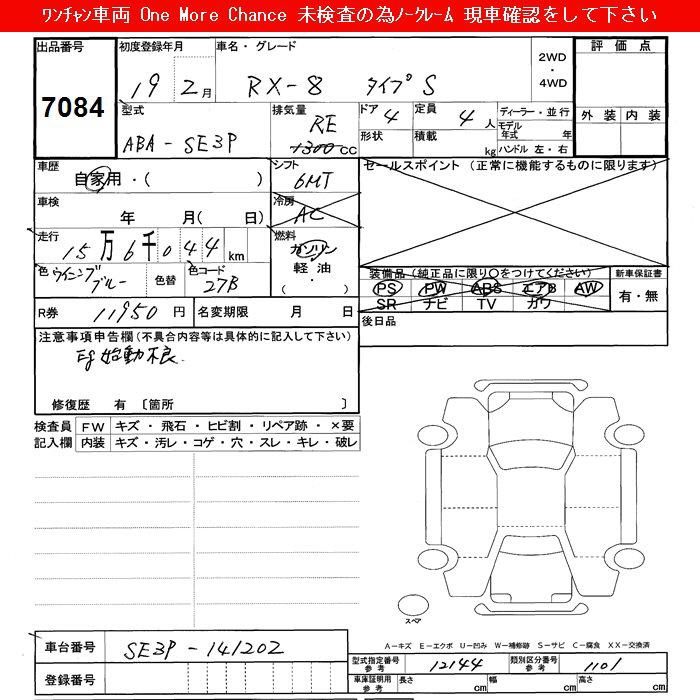 ワンチャン車両 One More Chance 未検査の為ノークレーム 現車確認をして下さい
出品番号 初度登録年月 車名・グレード 2WD ・ 4WD 評価点
7084 19 2月 RX-8 タイプS
型式 排気量 ドア 4 定員 4人 ディーラー・並行 外装 内装
ABA-SE3P RE 1300cc 形状 積載 kg モデル年式 年
ハンドル 左・右
車歴 自家用・( ) シフト 6MT セールスポイント (正常に機能するものに限ります)
車検 年 月( 日) 冷房 AC
走行 15万6千044km 燃料 ガソリン 軽油・ ( )
色 ウイニングブルー 色替 色コード 27B
装備品(純正品に限り○をつけてください) 新車保証書
PS PW ABS エアB AW 有・無
SR ナビ TV カワ
R券 11950円 名変期限 月 日 後日品
注意事項申告欄(不具合内容等は具体的に記入して下さい)
Eg始動不良.
修復歴 有 〔箇所 〕
検査員 FW キズ・飛石・ヒビ割・リペア跡・×要
記入欄 内装 キズ・汚レ・コゲ・穴・スレ・キレ・破レ
スペア
A-キズ E-エクボ U-凹み W-補修跡 S-サビ C-腐食 XX-交換済
車台番号 SE3P-141202
型式指定番号 参考 12144 類別区分番号 参考 1101
登録番号 車庫証明用 参考 長さ cm 幅 cm 高さ cm